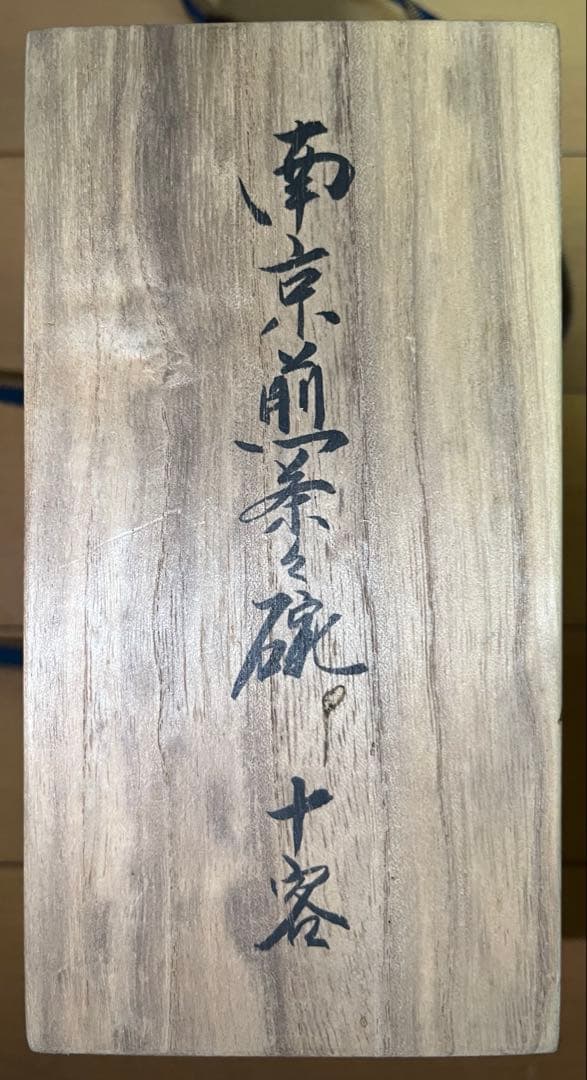 南京煎茶々碗 十客